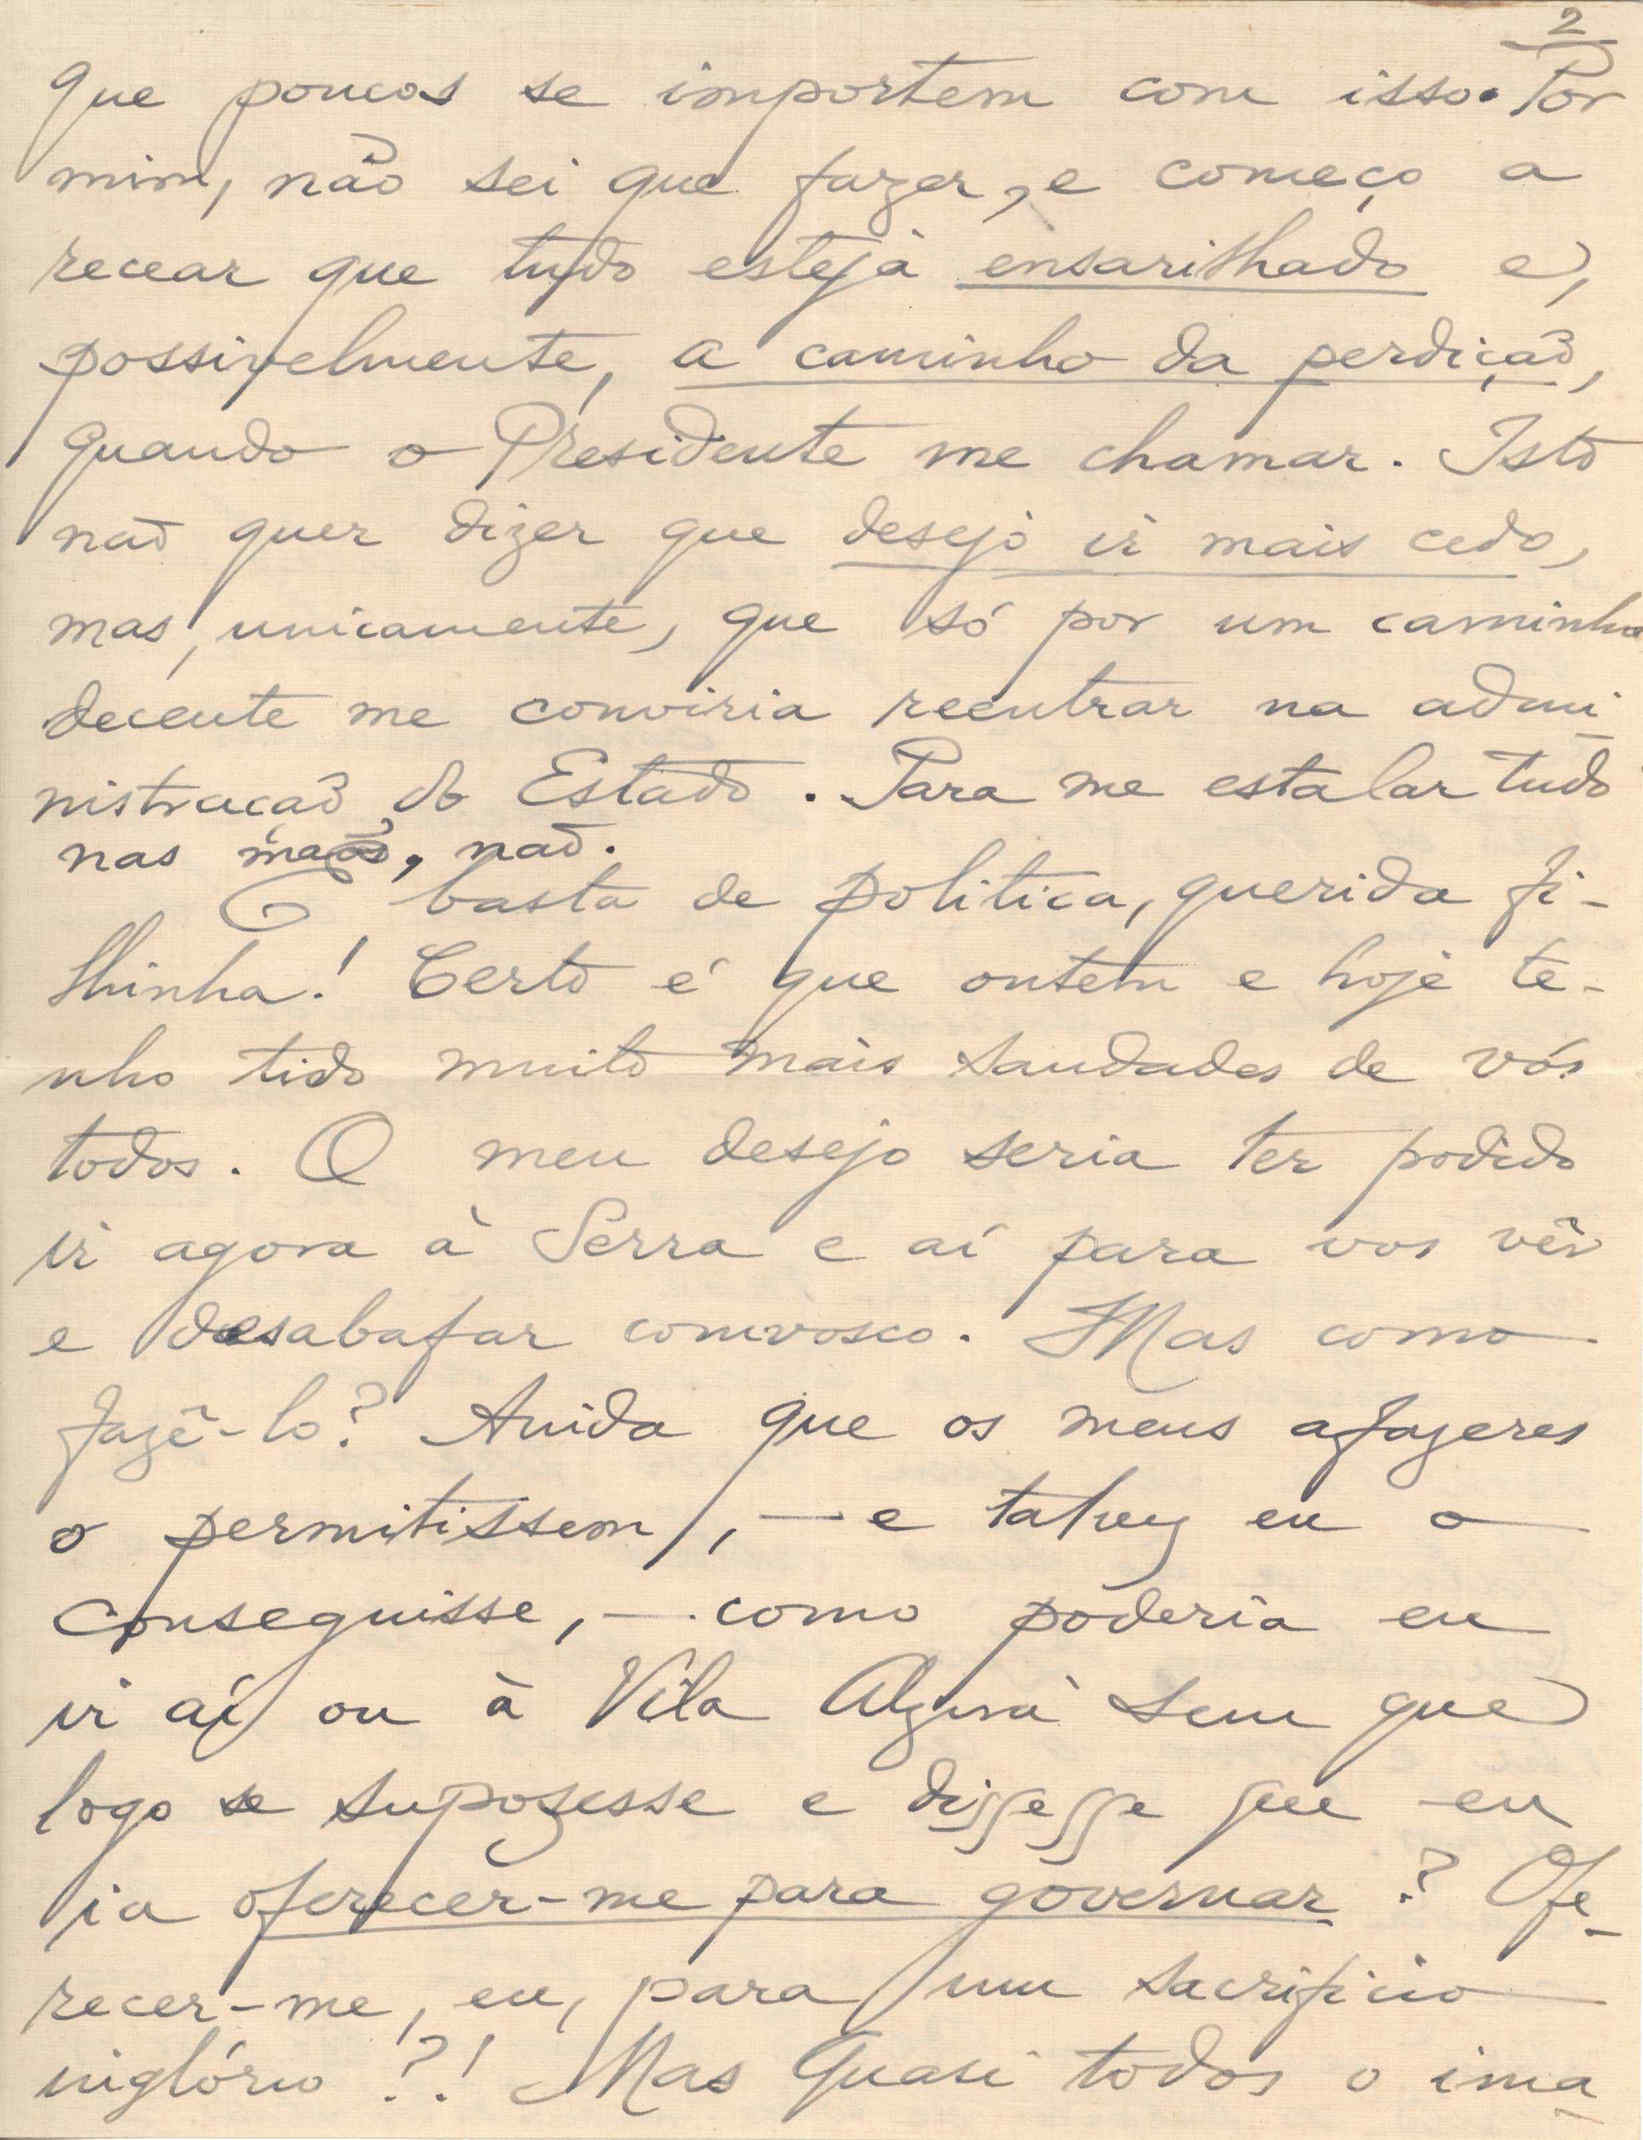 2
que poucos se importem com isso. Por
mim, não sei que fazer, e começo a
recear que tudo esteja ensarilhado e,
possivelmente, a caminho da perdição,
quando o Presidente me chamar. Isto
não quer dizer que desejo ir mais cedo,
mas, unicamente, que só por um caminho
decente me conviria reentrar na admi-
nistração do Estado. Para me estalar tudo
nas mãos, não.
E basta de politica, querida fi-
lhinha! Certo é que ontem e hoje te-
nho tido muito mais saudades de vós
todos. O meu desejo seria ter podido
ir agora à Serra e aí para vos vêr
e desabafar comvosco. Mas como
fazê-lo? Ainda que os meus afazeres
o permitissem, — e talvez eu o
conseguisse, — como poderia eu
ir aí ou à Vila Alzira sem que
logo se supozesse e dissesse que eu
ia oferecer-me para governar? Ofe-
recer-me, eu, para um sacrificio
inglório?! Mas quasi todos o ima-